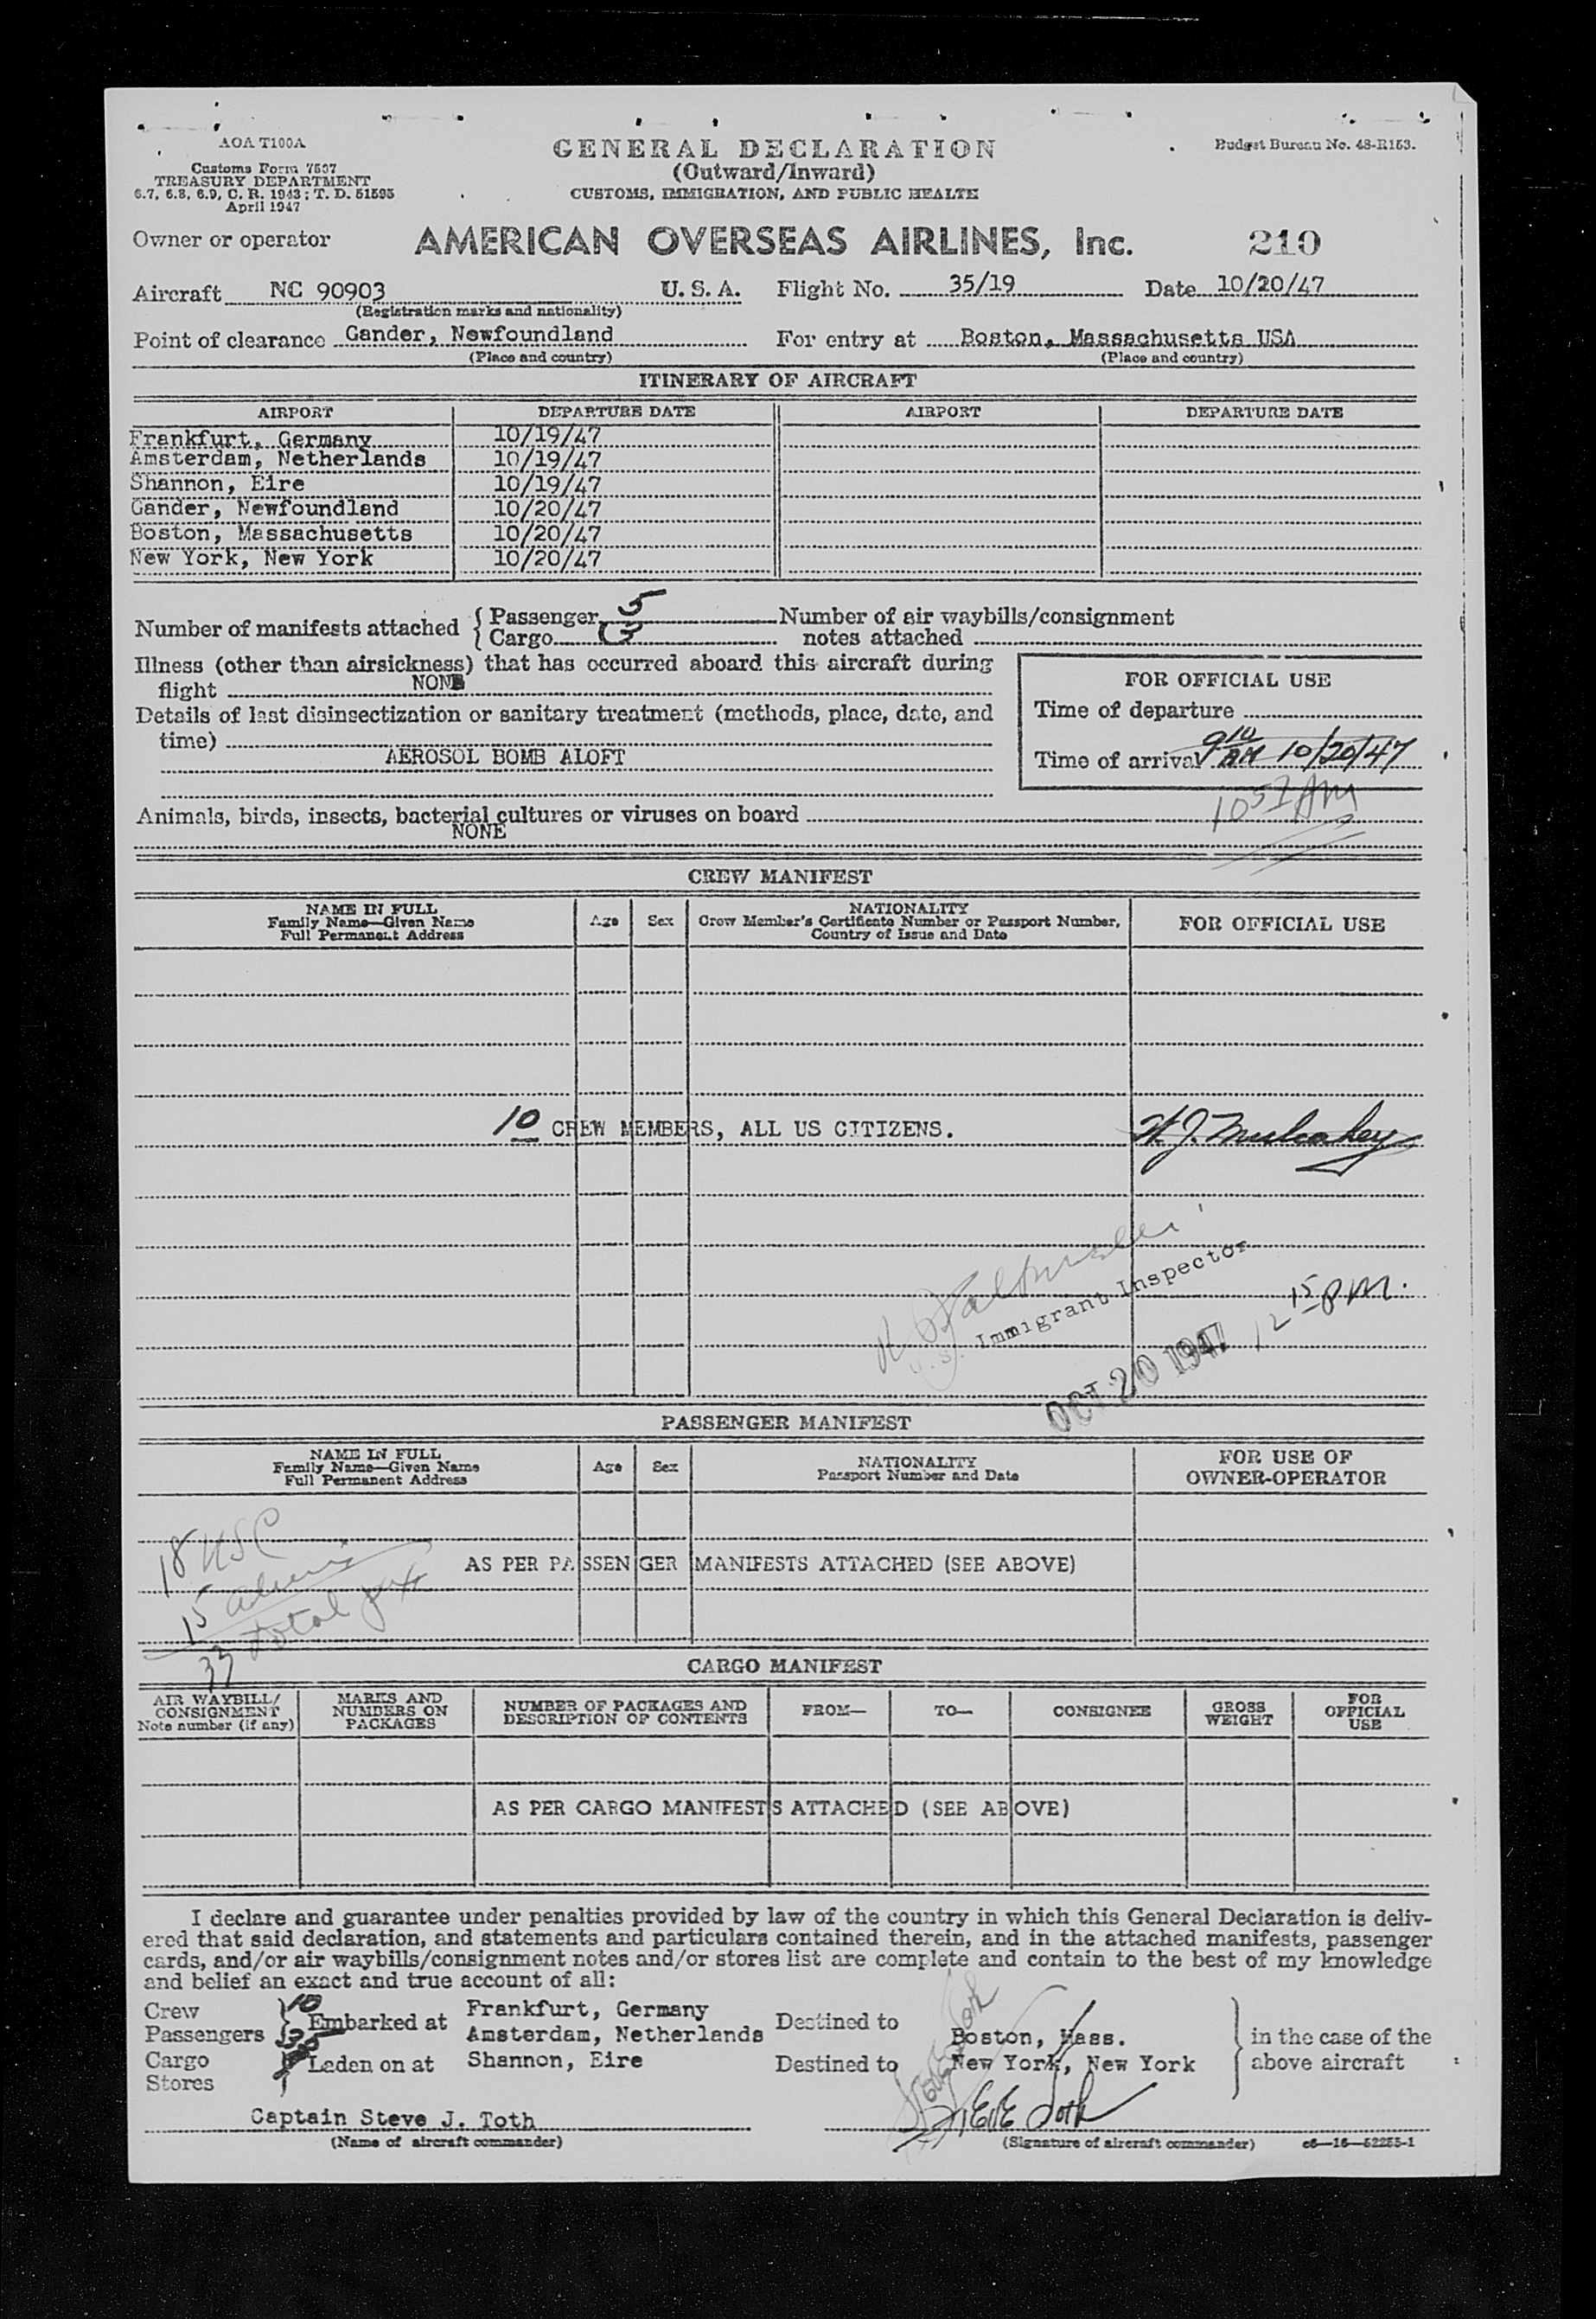 AOA T100A
Customs Form 7507
TREASURY DEPARTMENT
6.7, 6.8, 6.9, C. R. 1943; T. D. 51595
April 1947
GENERAL DECLARATION
(Outward/Inward)
CUSTOMS, IMMIGRATION, AND PUBLIC HEALTH
Budget Bureau No. 48-R153.
Owner or operator AMERICAN OVERSEAS AIRLINES, Inc. 210
Aircraft NC 90903 U. S. A. Flight No. 35/19 Date 10/20/47
(Registration marks and nationality)
Point of clearance Gander, Newfoundland For entry at Boston, Massachusetts USA
(Place and country) (Place and country)
ITINERARY OF AIRCRAFT
AIRPORT DEPARTURE DATE AIRPORT DEPARTURE DATE
Frankfurt, Germany 10/19/47
Amsterdam, Netherlands 10/19/47
Shannon, Eire 10/19/47
Gander, Newfoundland 10/20/47
Boston, Massachusetts 10/20/47
New York, New York 10/20/47
Number of manifests attached { Passenger 5 Number of air waybills/consignment
{ Cargo notes attached
Illness (other than airsickness) that has occurred aboard this aircraft during
flight NONE
Details of last disinsectization or sanitary treatment (methods, place, date, and
time)
AEROSOL BOMB ALOFT
FOR OFFICIAL USE
Time of departure
Time of arrival 9 10 AM 10/20/47
10 57 AM
Animals, birds, insects, bacterial cultures or viruses on board
NONE
CREW MANIFEST
NAME IN FULL
Family Name—Given Name
Full Permanent Address
Age Sex
NATIONALITY
Crew Member's Certificate Number or Passport Number,
Country of Issue and Date
FOR OFFICIAL USE
10 CREW MEMBERS, ALL US CITIZENS. W. J. Mulcahey
U. S. Immigrant Inspector
OCT 20 1947 12 15 PM.
PASSENGER MANIFEST
NAME IN FULL
Family Name—Given Name
Full Permanent Address
Age Sex
NATIONALITY
Passport Number and Date
FOR USE OF
OWNER-OPERATOR
18 USC
15 aliens
33 total
AS PER PASSENGER MANIFESTS ATTACHED (SEE ABOVE)
CARGO MANIFEST
AIR WAYBILL/
CONSIGNMENT
Note number (if any)
MARKS AND
NUMBERS ON
PACKAGES
NUMBER OF PACKAGES AND
DESCRIPTION OF CONTENTS
FROM— TO— CONSIGNEE
GROSS
WEIGHT
FOR
OFFICIAL
USE
AS PER CARGO MANIFESTS ATTACHED (SEE ABOVE)
I declare and guarantee under penalties provided by law of the country in which this General Declaration is deliv-
ered that said declaration, and statements and particulars contained therein, and in the attached manifests, passenger
cards, and/or air waybills/consignment notes and/or stores list are complete and contain to the best of my knowledge
and belief an exact and true account of all:
Crew 10
Passengers
Cargo
Stores
Embarked at
Laden on at
Frankfurt, Germany
Amsterdam, Netherlands
Shannon, Eire
Destined to
Destined to
Boston, Mass.
New York, New York
in the case of the
above aircraft
Captain Steve J. Toth Steve Toth
(Name of aircraft commander) (Signature of aircraft commander) c6—16—52255-1